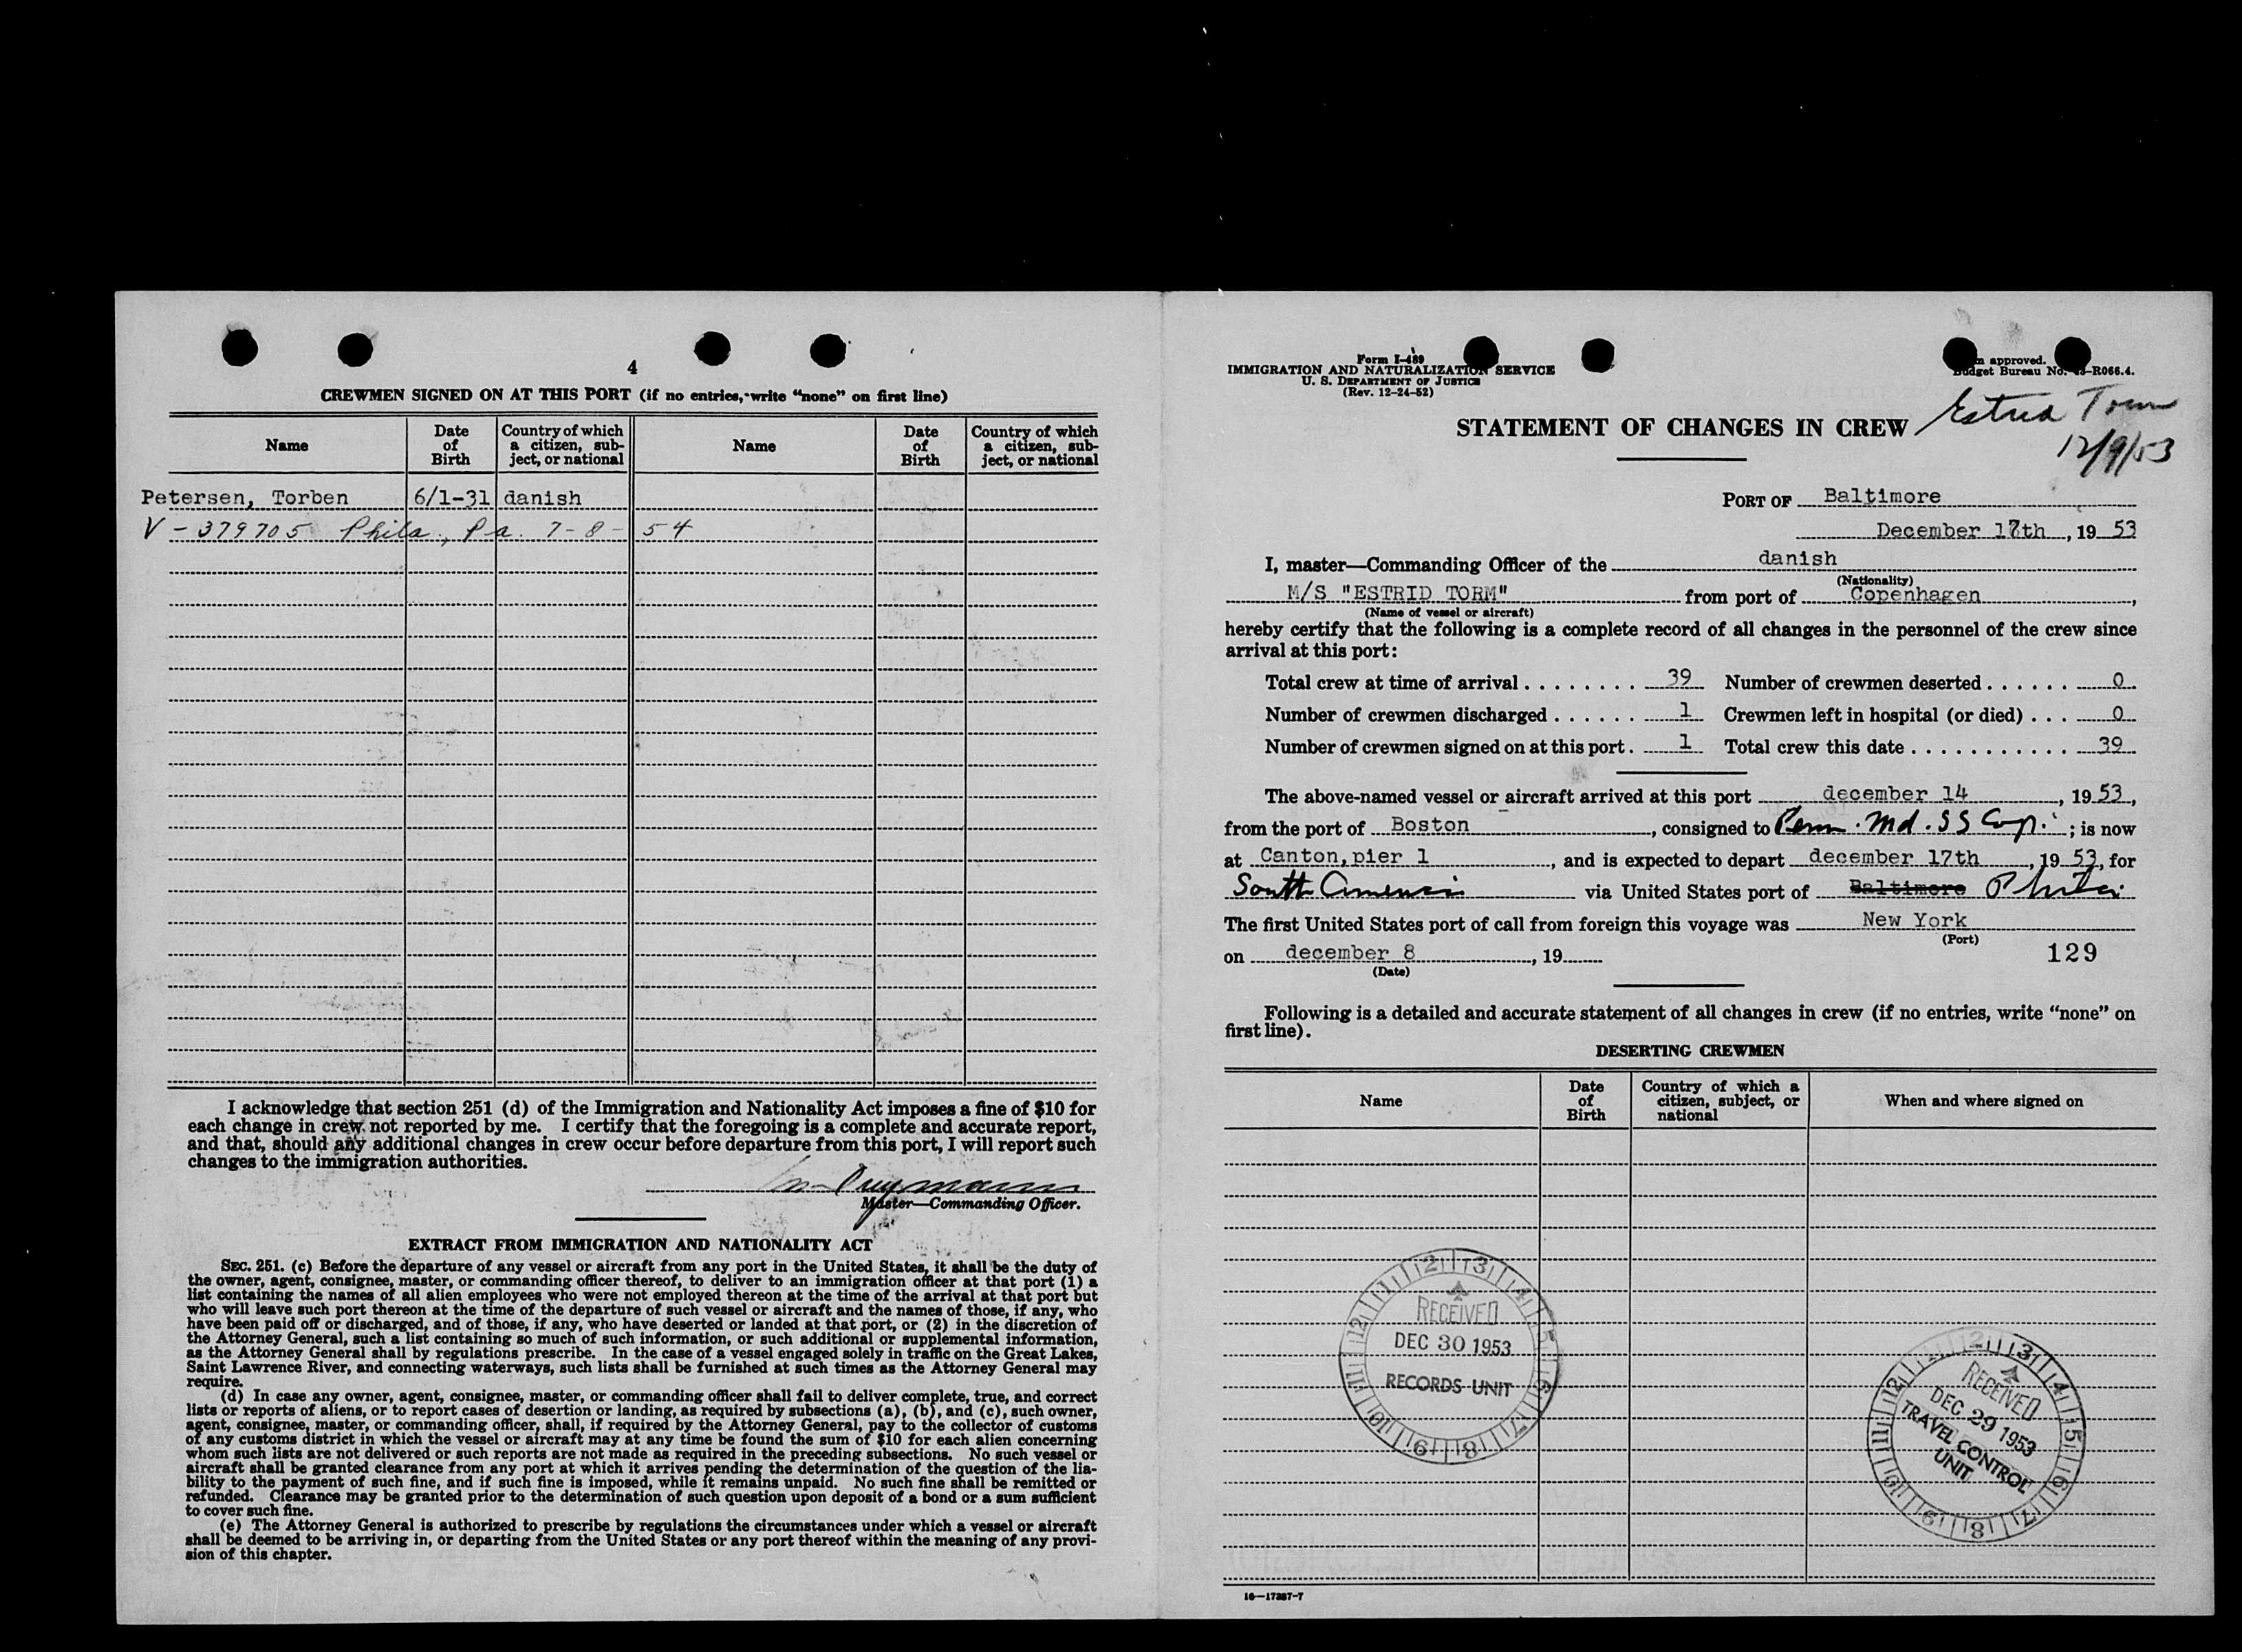 4
CREWMEN SIGNED ON AT THIS PORT (if no entries, write “none” on first line)
Name
Date of Birth
Country of which a citizen, subject, or national
Name
Date of Birth
Country of which a citizen, subject, or national
Petersen, Torben 6/1-31 danish
V-379705 Phila., Pa. 7-8-54
I acknowledge that section 251 (d) of the Immigration and Nationality Act imposes a fine of $10 for
each change in crew not reported by me. I certify that the foregoing is a complete and accurate report,
and that, should any additional changes in crew occur before departure from this port, I will report such
changes to the immigration authorities.
Master—Commanding Officer.
EXTRACT FROM IMMIGRATION AND NATIONALITY ACT
SEC. 251. (c) Before the departure of any vessel or aircraft from any port in the United States, it shall be the duty of
the owner, agent, consignee, master, or commanding officer thereof, to deliver to an immigration officer at that port (1) a
list containing the names of all alien employees who were not employed thereon at the time of the arrival at that port but
who will leave such port thereon at the time of the departure of such vessel or aircraft and the names of those, if any, who
have been paid off or discharged, and of those, if any, who have deserted or landed at that port, or (2) in the discretion of
the Attorney General, such a list containing so much of such information, or such additional or supplemental information,
as the Attorney General shall by regulations prescribe. In the case of a vessel engaged solely in traffic on the Great Lakes,
Saint Lawrence River, and connecting waterways, such lists shall be furnished at such times as the Attorney General may
require.
(d) In case any owner, agent, consignee, master, or commanding officer shall fail to deliver complete, true, and correct
lists or reports of aliens, or to report cases of desertion or landing, as required by subsections (a), (b), and (c), such owner,
agent, consignee, master, or commanding officer, shall, if required by the Attorney General, pay to the collector of customs
of any customs district in which the vessel or aircraft may at any time be found the sum of $10 for each alien concerning
whom such lists are not delivered or such reports are not made as required in the preceding subsections. No such vessel or
aircraft shall be granted clearance from any port at which it arrives pending the determination of the question of the lia-
bility to the payment of such fine, and if such fine is imposed, while it remains unpaid. No such fine shall be remitted or
refunded. Clearance may be granted prior to the determination of such question upon deposit of a bond or a sum sufficient
to cover such fine.
(e) The Attorney General is authorized to prescribe by regulations the circumstances under which a vessel or aircraft
shall be deemed to be arriving in, or departing from the United States or any port thereof within the meaning of any provi-
sion of this chapter.
Form I-489
IMMIGRATION AND NATURALIZATION SERVICE
U. S. DEPARTMENT OF JUSTICE
(Rev. 12-24-52)
approved.
Budget Bureau No. -R066.4.
Estrid Torm
12/9/53
STATEMENT OF CHANGES IN CREW
PORT OF Baltimore
December 17th, 19 53
I, master—Commanding Officer of the danish
(Nationality)
M/S "ESTRID TORM" from port of Copenhagen,
(Name of vessel or aircraft)
hereby certify that the following is a complete record of all changes in the personnel of the crew since
arrival at this port:
Total crew at time of arrival . . . . . . . . 39 Number of crewmen deserted . . . . . . 0
Number of crewmen discharged . . . . . . 1 Crewmen left in hospital (or died) . . . 0
Number of crewmen signed on at this port . 1 Total crew this date . . . . . . . . . . . . 39
The above-named vessel or aircraft arrived at this port december 14, 19 53,
from the port of Boston, consigned to Penn. Md. SS Corp.; is now
at Canton, pier 1, and is expected to depart december 17th, 19 53, for
South America via United States port of Baltimore Phila
The first United States port of call from foreign this voyage was New York
(Port)
on december 8, 19
(Date)
129
Following is a detailed and accurate statement of all changes in crew (if no entries, write “none” on
first line).
DESERTING CREWMEN
Name
Date of Birth
Country of which a citizen, subject, or national
When and where signed on
RECEIVED
DEC 30 1953
RECORDS UNIT
RECEIVED
DEC 29 1953
TRAVEL CONTROL
UNIT
16—17387-7